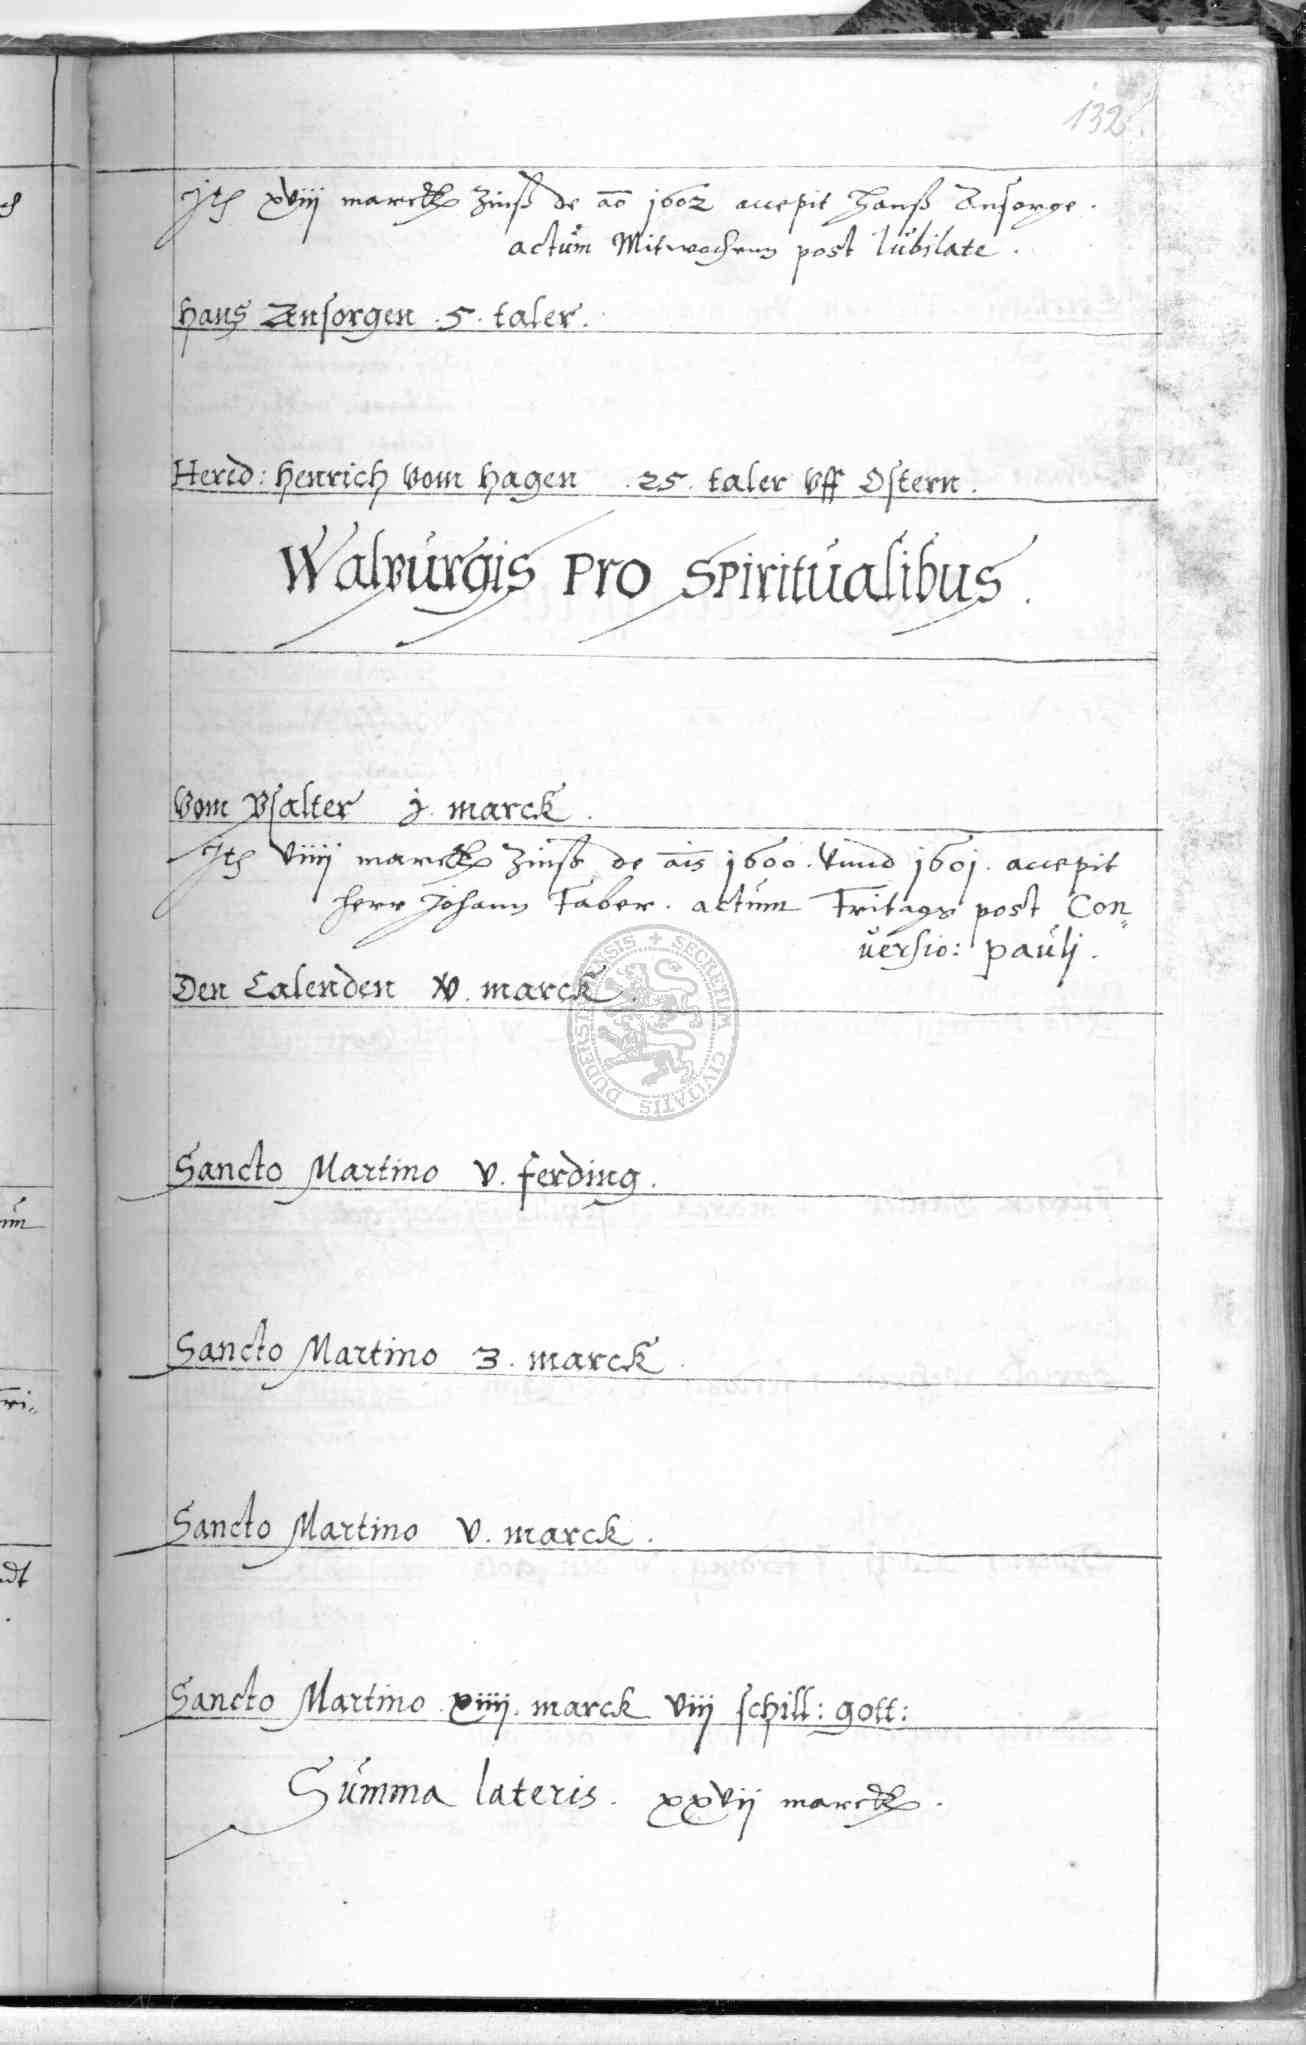 132
Jt xviij marck Zinß de ao 1602 accepit Hanß Ansorge.
actum Mitwochenn post Iubilate.
Hans Ansorgen .5. taler.
Hered: Henrich vom Hagen .25. taler vff Ostern.
Walpurgis pro spiritualibus.
vom Psalter j. marck.
Jt viiij marck Zinß de ais 1600. vnnd 1601. accepit
Herr Johann Faber. actum Fritags post Con=
uersio: pauli.
Den Calenden xv. marck.
Sancto Martino v. ferding.
Sancto Martino 3. marck.
Sancto Martino v. marck.
Sancto Martino xiiij. marck viij schill: gott:
Summa lateris. xxvij marck.
SECRETUM CIVITATIS DUDERSTADENSIS